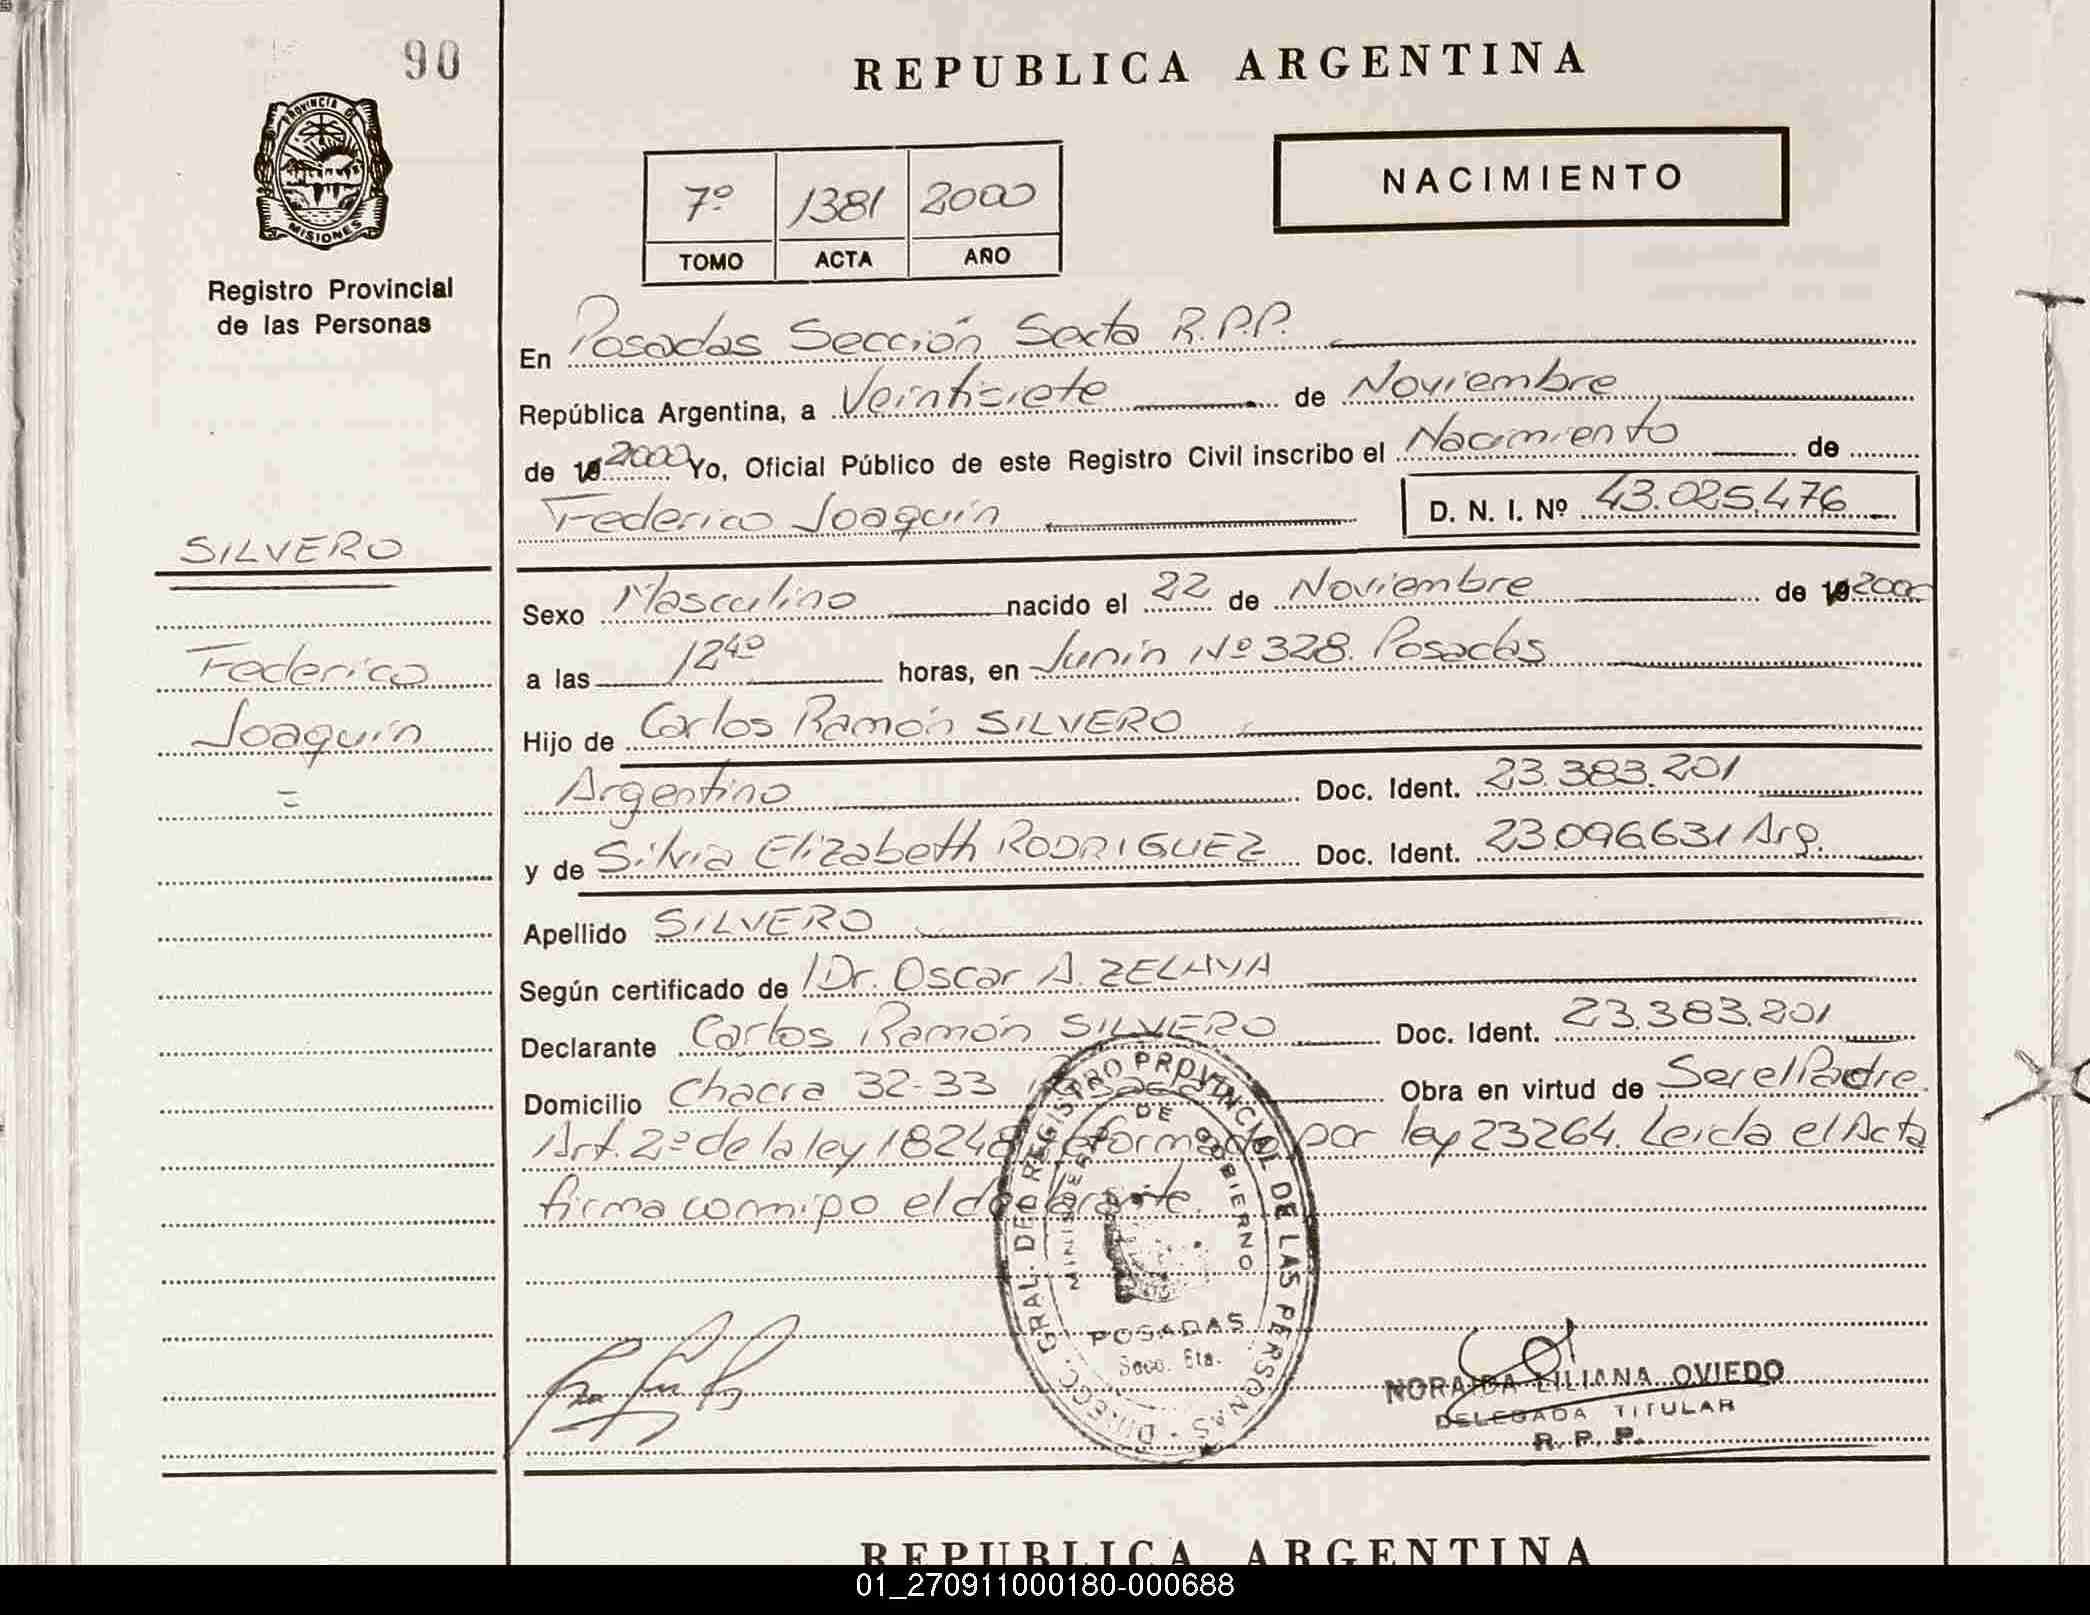 90
REPUBLICA ARGENTINA
PROVINCIA DE
MISIONES
Registro Provincial
de las Personas
7º 1381 2000
TOMO ACTA AÑO
NACIMIENTO
En Posadas Sección Sexta R.P.P.
República Argentina, a Veintisiete de Noviembre
de 19 2000 Yo, Oficial Público de este Registro Civil inscribo el Nacimiento de
Federico Joaquín D. N. I. Nº 43.025.476
SILVERO
Federico
Joaquín
=
Sexo Masculino nacido el 22 de Noviembre de 19 2000
a las 12 40 horas, en Junín Nº 328. Posadas
Hijo de Carlos Ramón SILVERO
Argentino Doc. Ident. 23.383.201
y de Silvia Elizabeth RODRIGUEZ Doc. Ident. 23.096.631 Arg.
Apellido SILVERO
Según certificado de Dr. Oscar A. ZELAYA
Declarante Carlos Ramón SILVERO Doc. Ident. 23.383.201
Domicilio Chacra 32-33 Posadas Obra en virtud de Ser el Padre
Art. 2º de la ley 18248 reformado por ley 23264. Leída el Acta
firma conmigo el declarante.
DIRECC. GRAL. DEL REGISTRO PROVINCIAL DE LAS PERSONAS
MINISTERIO DE GOBIERNO
POSADAS
Secc. 6ta.
NORAIDA LILIANA OVIEDO
DELEGADA TITULAR
R. P. P.
REPUBLICA ARGENTINA
01_270911000180-000688